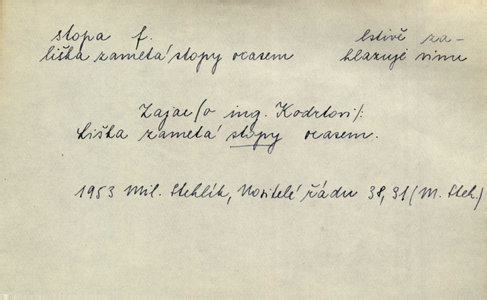 stopa f. lstivě za-
liška zametá stopy ocasem hlazuje vinu
Zajac /o ing. Kodrtovi/:
Liška zametá stopy ocasem.
1953 Mil. Stehlík, Nositelé řádu 38, 91 (M. Steh.)